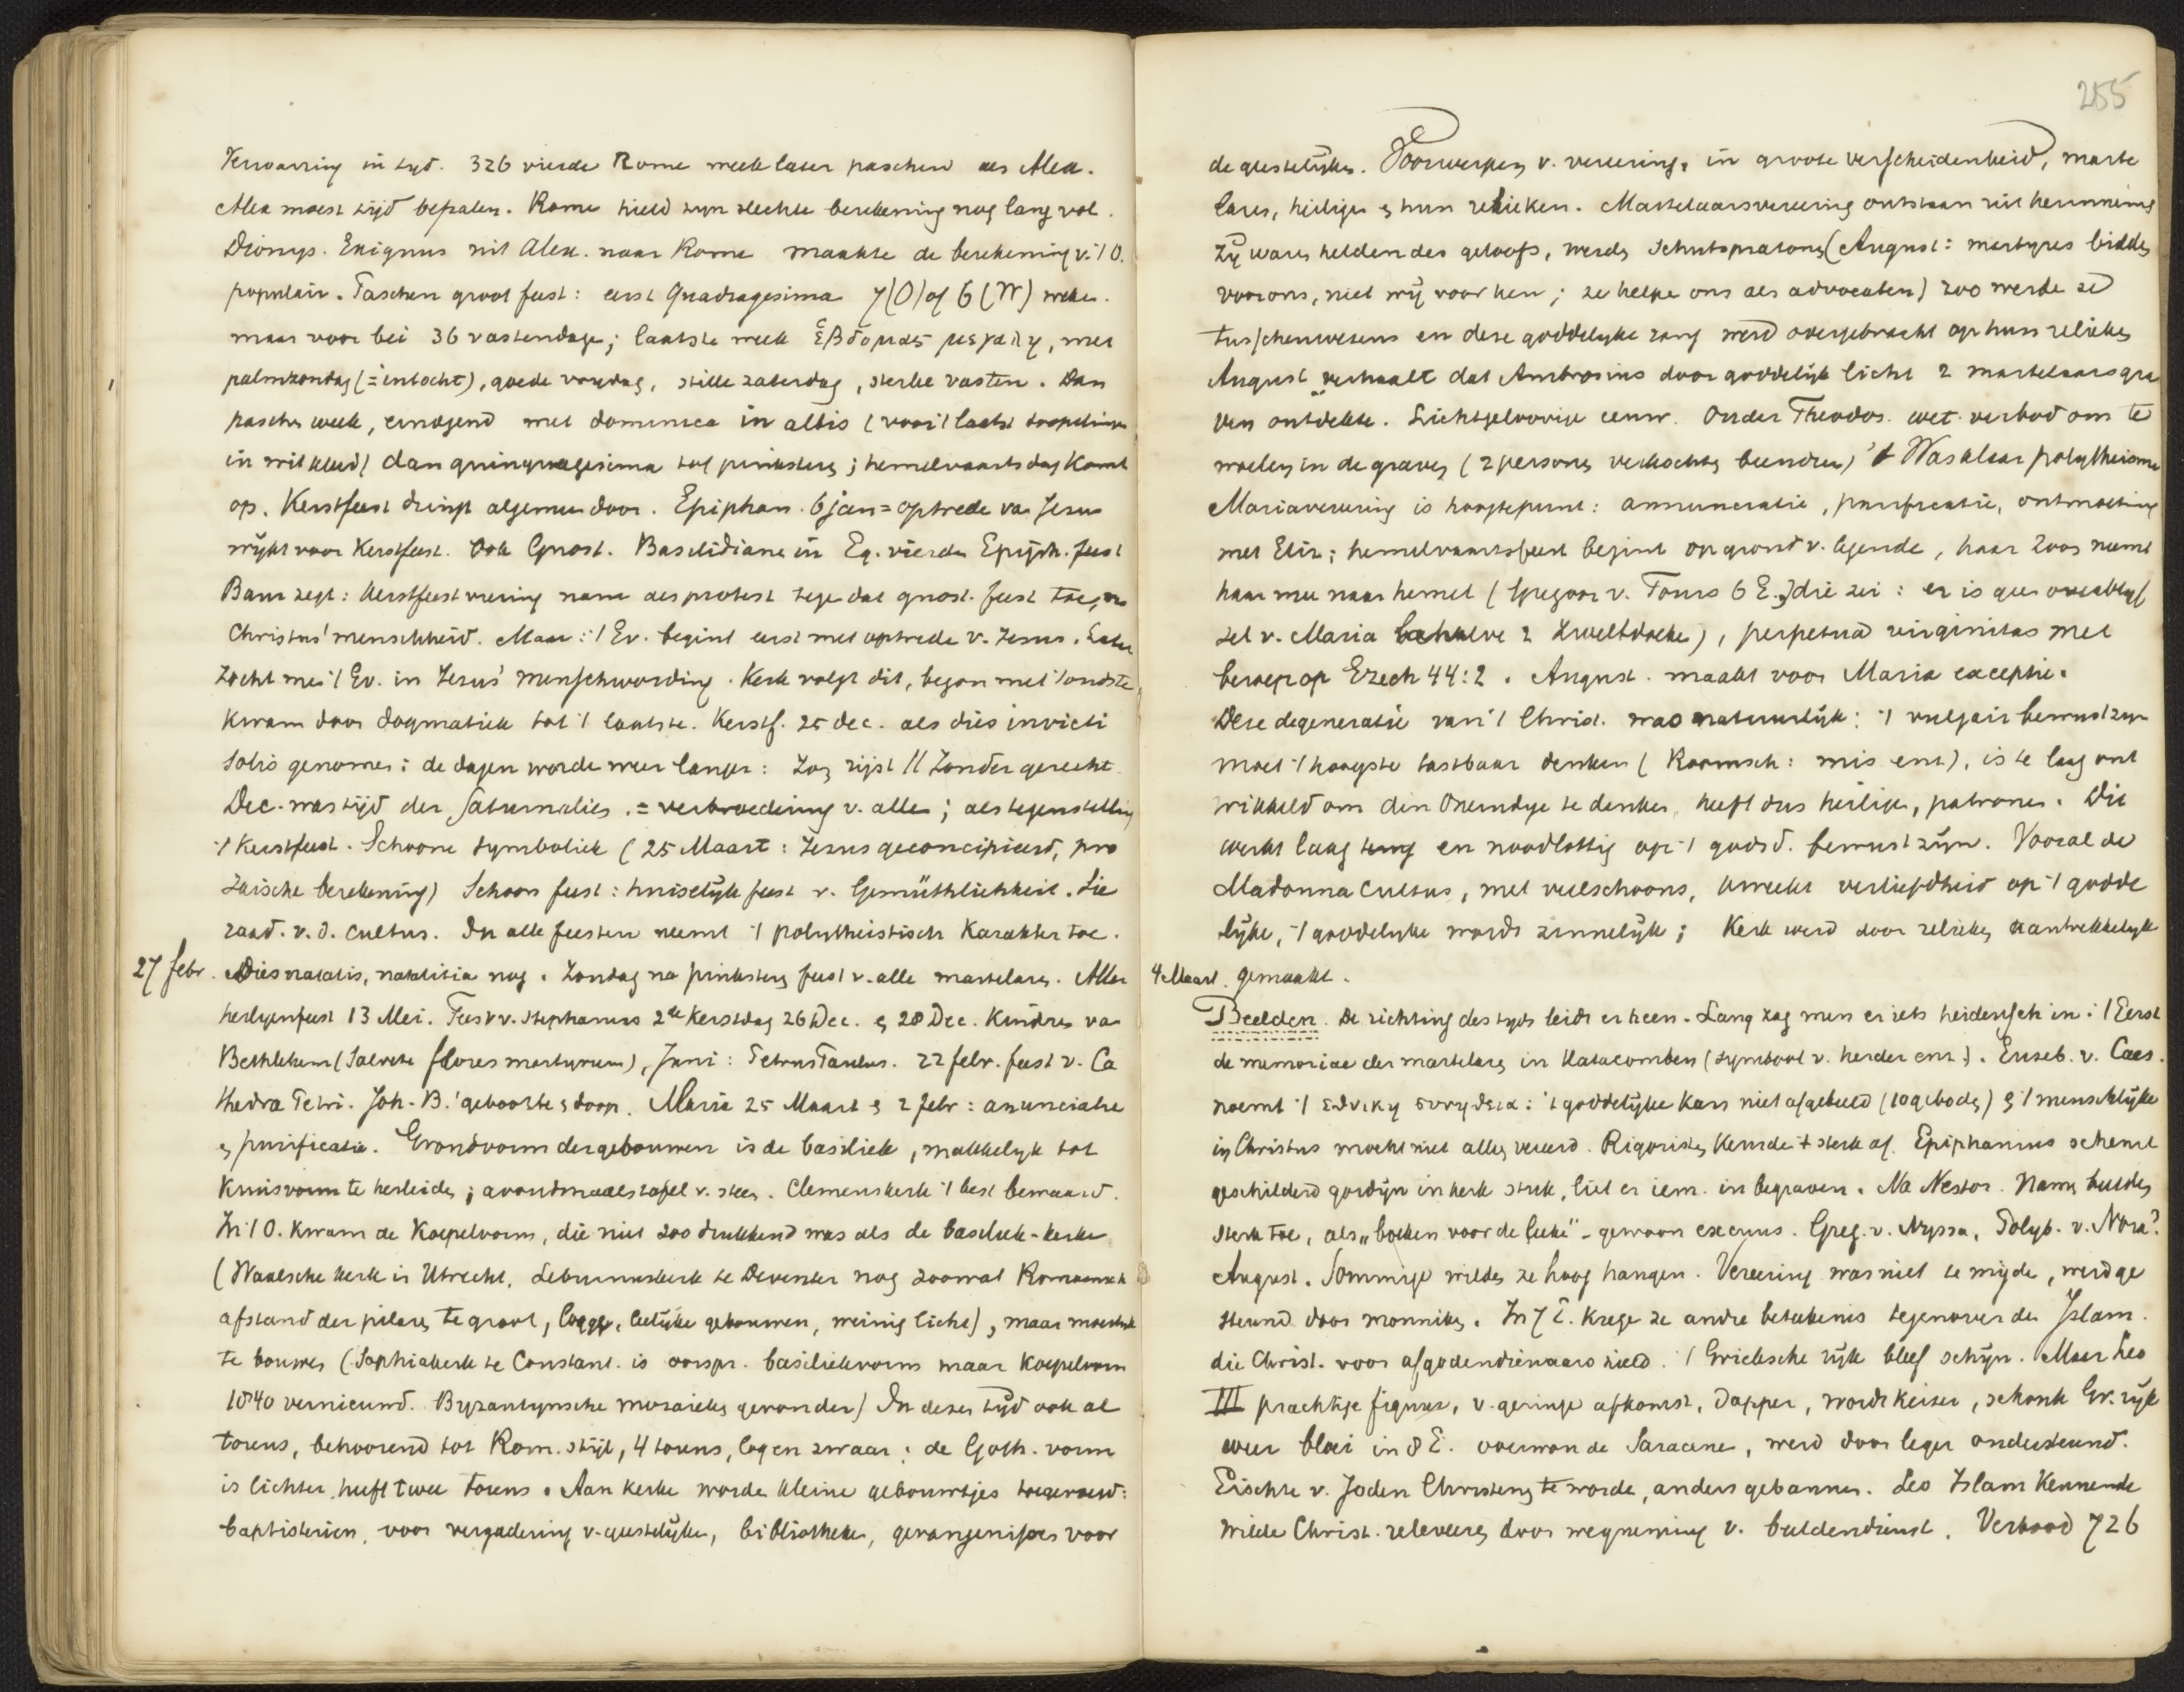 Verwarring in tyd. 326 vierde Rome week later paschen als Alex.
Alex moest tijd bepalen. Rome hield zyn slechte berekening nog lang vol.
Dionys. Exiguus uit Alex. naar Rome maakte de berekening v. 't O.
populair. Paschen groot feest: eerst Quadragesima 7 (O) of 6 (W) weken.
maar voor bei 36 vastendage; laatste week ἑβδομας μεγαλη, met
palmzondag (= intocht), goede vrydag, stille zaterdag, sterke vasten. Dan
pasche week, eindigend met dominica in albis (voor 't laatst doopelingen
in wit kleed) dan quinquagesima tot pinksteren; hemelvaartsdag komt
op. Kerstfeest dringt algemeen door. Epiphan. 6 jan = optrede va Jesus
wijkt voor Kerstfeest. Ook Gnost. Basilidiane in Eg. vierden Epiph. feest
Baur zegt: Kerstfeestviering nam als protest tege dat gnost. feest toe,
Christus' menschheid. Maar: 't Ev. begint eerst met optrede v. Jesus. Later
zocht me 't Ev. in Jezus' menschwording. Kerk volgt dit, begon met 't oudste,
kwam door dogmatiek tot 't laatste. Kerstf. 25 dec. als dies invicti
Solis genomen: de dagen worde weer langer: Zoo rijst // Zonder gerecht.
Dec. was tijd der Saturnalies. = verbroedering v. alle; als tegenstelling
't Kerstfeest. Schoone symboliek (25 Maart: Jezus geconcipieerd, pro
zaische berekening) Schoon feest: huiselijk feest v. Gemüthlichkeit. Sie
raad. v. d. cultus. In alle feesten neemt 't polytheistisch karakter toe.
27 febr. Dies natalis, natalitia nog. Zondag na pinksteren feest v. alle martelaren. Aller
heiligenfeest 13 Mei. Feest v. Stephanus 2de Kerstdag 26 Dec. & 28 Dec. Kindren va
Bethlehem (Salvete flores martyrum), Juni: Petrus Paulus. 22 febr. feest v. Ca
thedra Petri. Joh. B.' geboorte & doop. Maria 25 Maart & 2 febr: anunciatie
& purificatie. Grondvorm der gebouwen is de basiliek, makkelyk tot
kruisvorm te herleiden; avondmaalstafel v. steen. Clemenskerk 't best bewaard.
In 't O. kwam de Koepelvorm, die niet zoo drukkend was als de basiliek-kerke
(Waalsche kerk in Utrecht, Lebuinuskerk te Deventer nog zoowat Romaansch
afstand der pilaren te groot, logge, leelijke gebouwen, weinig licht), maar moeilijk
te bouwen (Sophiakerk te Constant. is oorspr. basiliekvorm maar koepelvorm
1840 vernieuwd. Byzantynsche mozaieken gevonden) In dezen tijd ook al
torens, behoorend tot Rom. stijl, 4 torens, log en zwaar; de Goth. vorm
is lichter, heeft twee torens. Aan kerke worde kleine gebouwtjes toegevoegd:
baptisterien, voor vergadering v. geestelijke, bibliotheken, gevangenissen voor
255
de geestelijken. Voorwerpen v. vereering, in groote verscheidenheid, marte
laren, heiligen & hun relieken. Martelaarsvereering ontstaan uit herinnering
zij waren helden des geloofs, werden schutspatroons (August: martyres bidden
voor ons, niet wij voor hen; ze helpe ons als advocaten) zoo werde ze
tusschenwezens en deze goddelyke rang werd overgebracht op hun relieken
August verhaalt dat Ambrosius door goddelijk licht 2 martelaarsgra
ven ontdekte. Lichtgeloovige eeuw. Onder Theodos. wet verbod om te
woelen in de graven (2 personen verkochten beendren) 't Was klaar polytheisme
Mariavereering is hoogtepunt: annunciatie, purificatie, ontmoeting
met Eliz; hemelvaartsfeest begint op grond v. legende, haar Zoon neemt
haar mee naar hemel (Gregoor v. Tours 6 E.) die zei: er is geen overblyf
sel v. Maria behalve 2 zweetdoeke), perpetua virginitas met
beroep op Ezech 44:2. August. maakt voor Maria exceptie.
Deze degeneratie van 't Christ. was natuurlijk: 't vulgair bewustzyn
moet 't hoogste tastbaar denken (Roomsch: mis enz), is te laag ont
wikkeld om den Oneindige te denken, heeft dus heilige, patronen. Dit
werkt laag en noodlottig op 't godsd. bewustzijn. Vooral de
Madonna cultus, met veel schoons, kweekt verliefdheid op 't godde
lijke, 't goddelyke wordt zinnelijk; Kerk werd door relieken aantrekkelyk
4 Maart. gemaakt.
Beelden. De richting des tyds leidt er heen. Lang zag men er iets heidensch in: 't Eerst
de memoriae der martelaren in Katacomben (symbool v. herder enz.). Euseb. v. Caes.
noemt 't ἐθνικη συνηθεια: 't goddelijke kan niet afgebeeld (10 geboden) & 't menschlijke
in Christus mocht niet alleen vereerd. Rigoristen keurde 't sterk af. Epiphanius scheurt
geschilderd gordijn in kerk stuk, liet er iem. in begraven. Na Nestor. namen beelden
sterk toe, als „boeken voor de leeke" - gewoon excuus. Greg. v. Nyssa, Polyb. v. Nora?
August. Sommige wilden ze hoog hangen. Vereering was niet te mijde, werd ge
steund door monniken. In 7 E. krege ze andre beteekenis tegenover den Islam.
die Christ. voor afgodendienaars hield. 't Grieksche rijk bleef schijn. Maar Leo
III prachtige figuur, v. geringe afkomst, dapper, wordt keizer, schonk Gr. rijk
weer bloei in 8 E. overwon de Saracene, werd door leger ondersteund.
Eischte v. Joden Christen te worde, anders gebannen. Leo Islam kennende
wilde Christ. releveeren door wegneming v. beeldendienst. Verbood 726